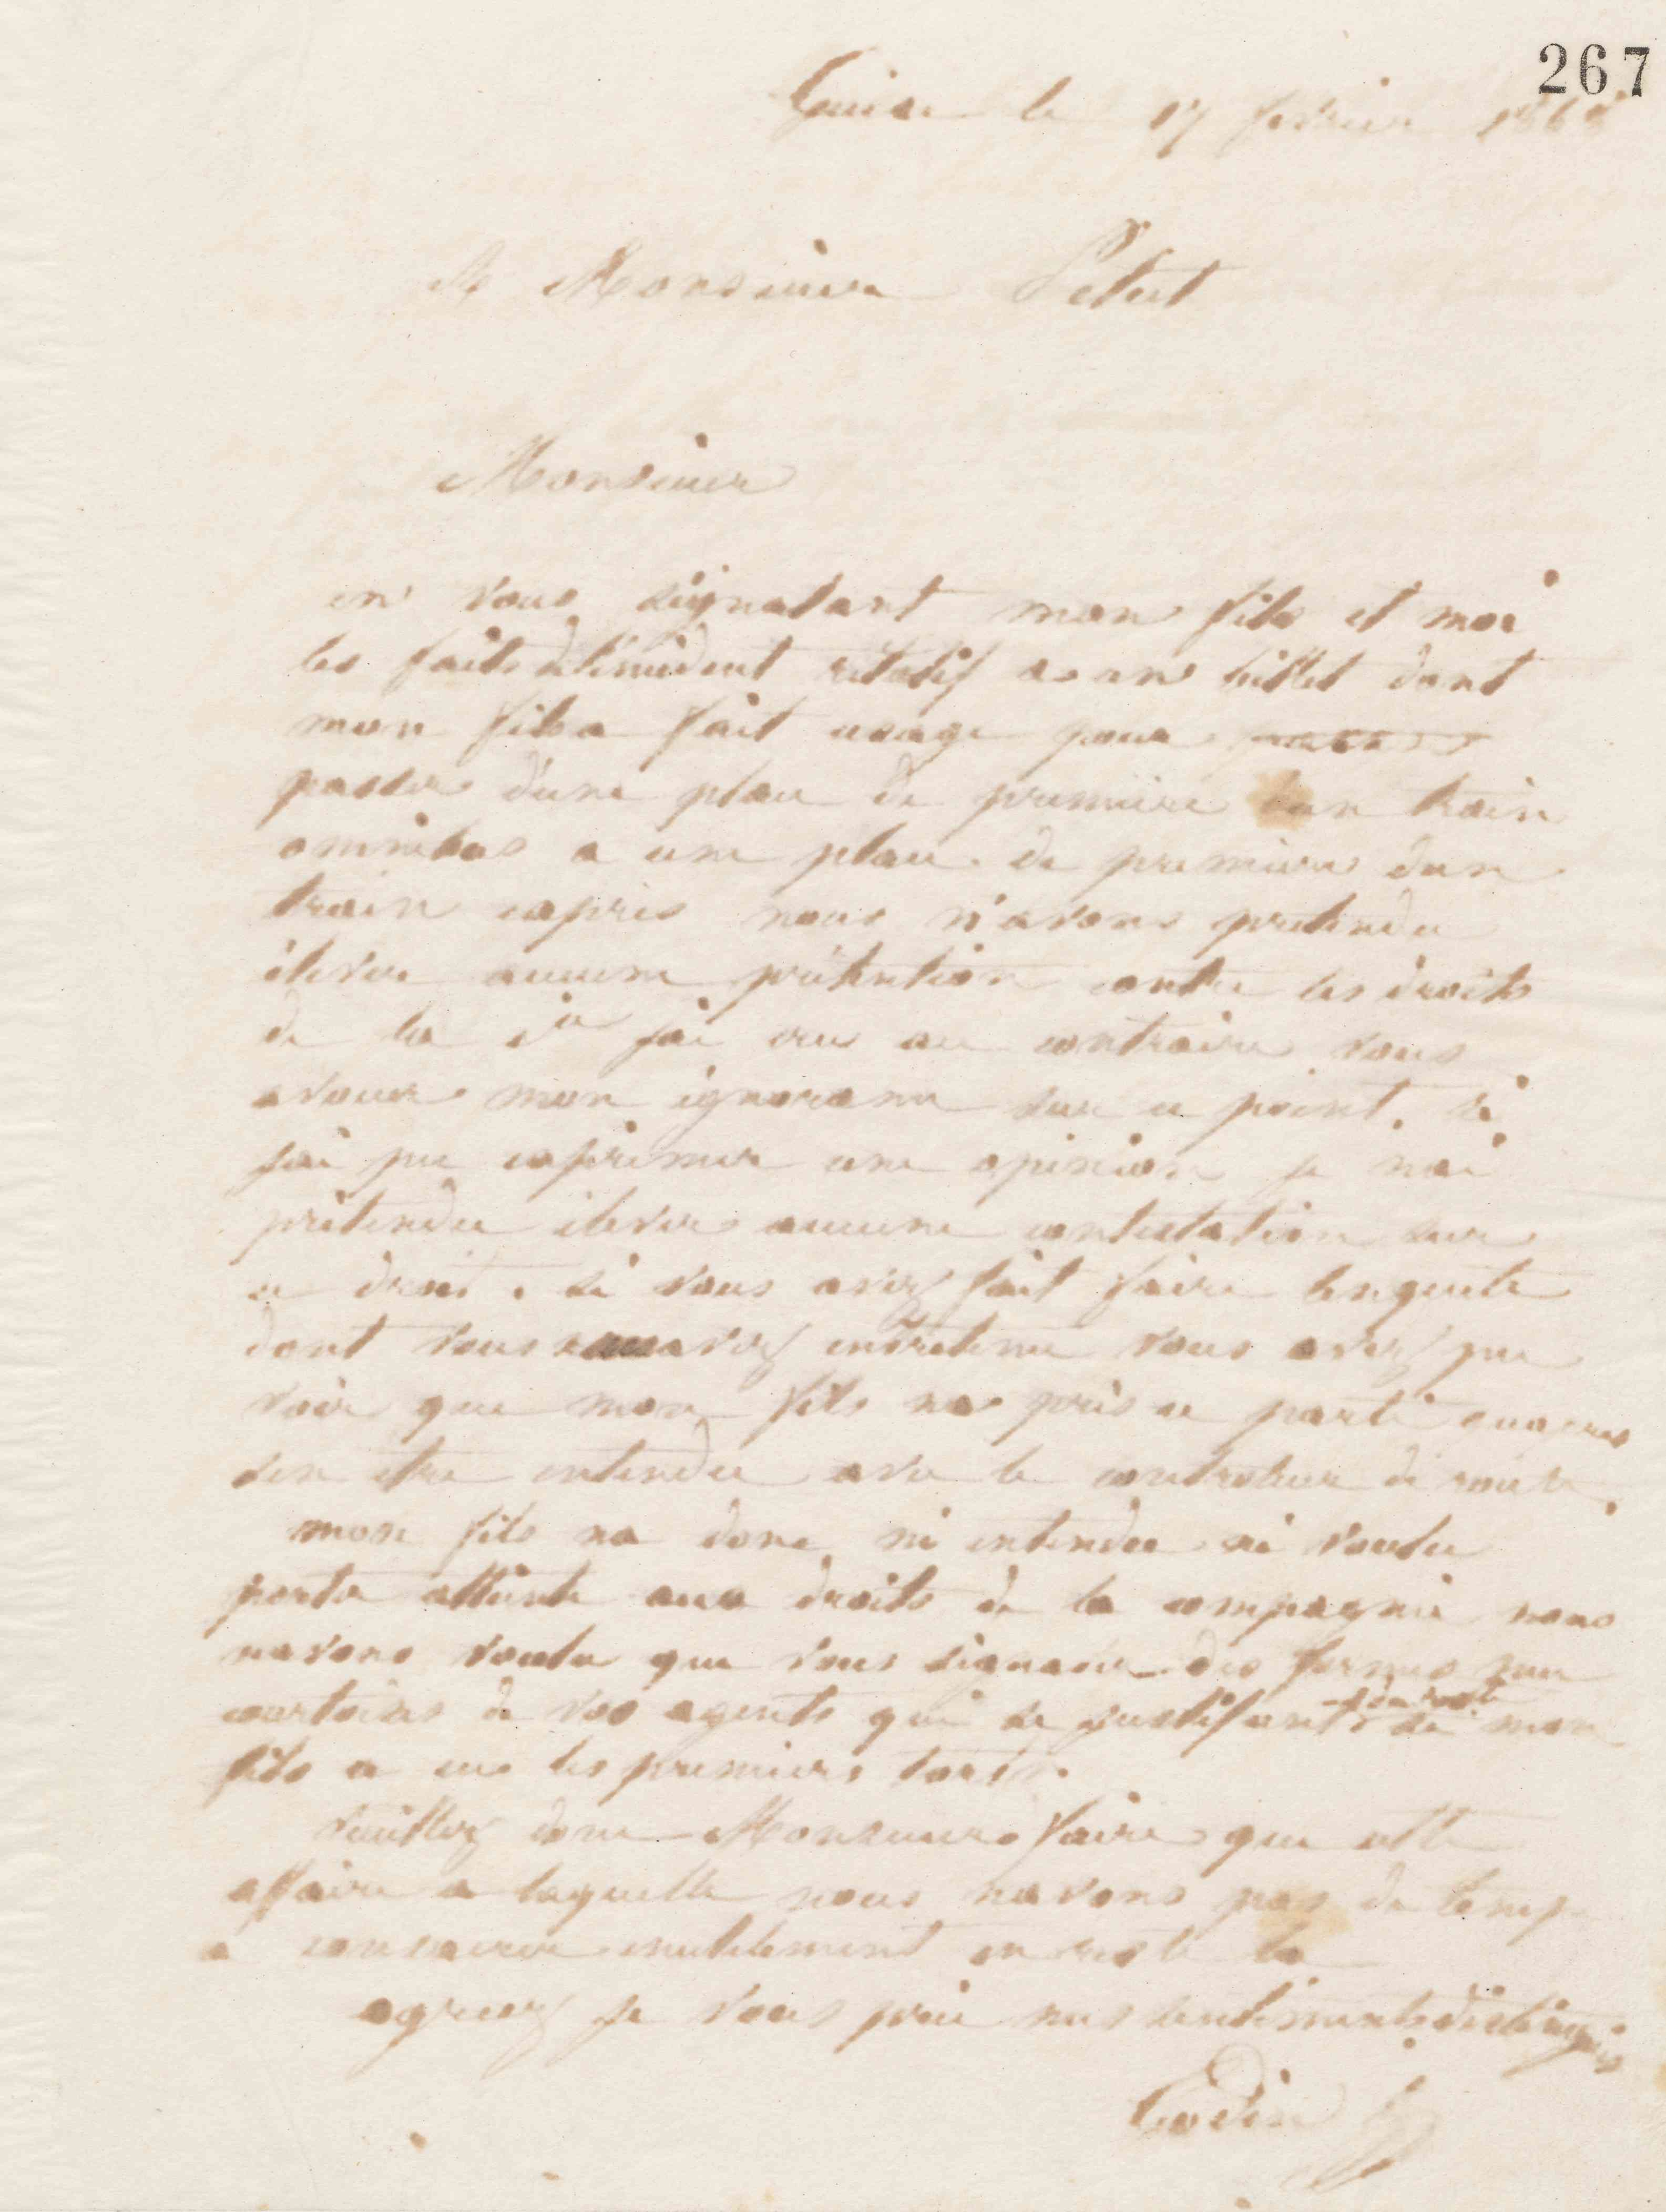 267
Guise le 17 fevrier 186
A Monsieur Petiet
Monsieur
en vous signalant mon fils et moi
les faits de l'incident relatif a un billet dont
mon fils a fait usage pour
passer d'une place de premiere d'un train
omnibus a une place de premiere d'un
train expres nous n'avons pretendu
élever aucune prétention contre les droits
de la Cie j'ai cru au contraire vous
avouer mon ignorance sur ce point. si
jai pu exprimer une opinion je nai
prétendu élever aucune contestation sur
ce droit. si vous avez fait faire lenquete
dont vous mavez entretenu vous avez pu
voir que mon fils na pris ce parti quapres
sen etre entendu avec le controleur de route.
mon fils na donc ni entendu ni voulu
porter atteinte aux droits de la compagnie nous
navons voulu que vous signaler des formes peu
courtoises de vos agents qui se justifient si mon
fils a eu les premiers torts.
Veuillez donc Monsieur faire que cette
affaire a laquelle nous navons pas de temps
a consacrer inutilement en reste la
agreez je vous prie mes sentiments distingués
Godin